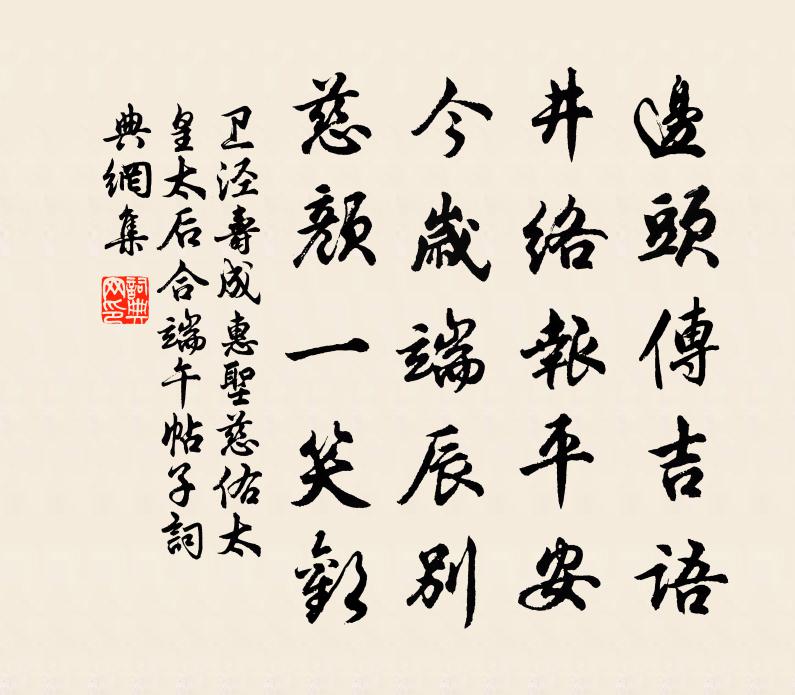 邊頭傳吉語
井絡報平安
今歲端辰別
慈顏一笑歡
卫泾壽成惠聖慈佑太
皇太后合端午帖子詞
典網集
詞典
网印